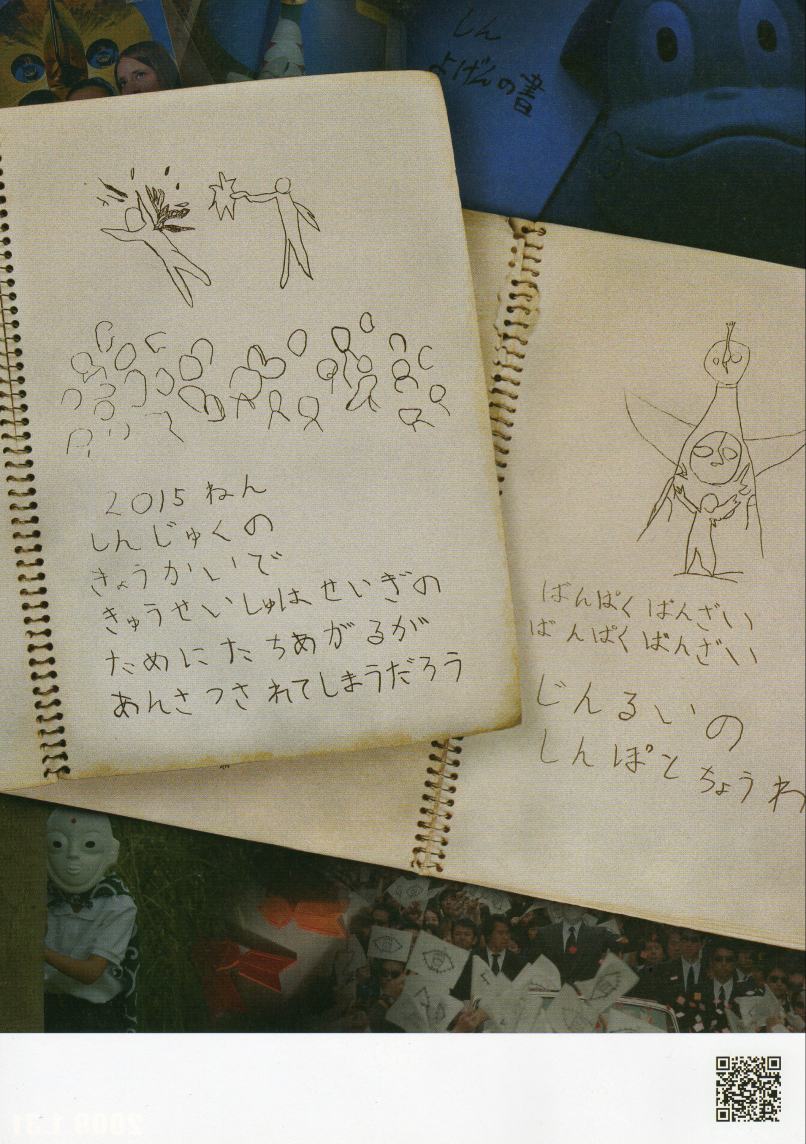 しん
よげんの書
2015ねん
しんじゅくの
きょうかいで
きゅうせいしゅは せいぎの
ために たちあがるが
あんさつされてしまうだろう
ばんぱく ばんざい
ばんぱく ばんざい
じんるいの
しんぽと ちょうわ
2009.1.31